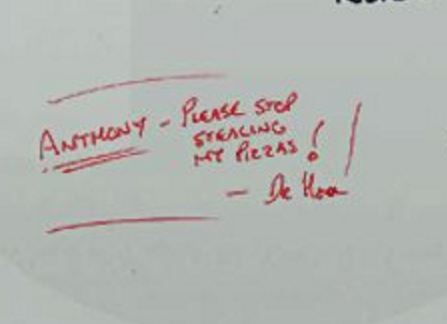 ANTHONY - PLEASE STOP
STEALING
MY PIZZAS!
- De